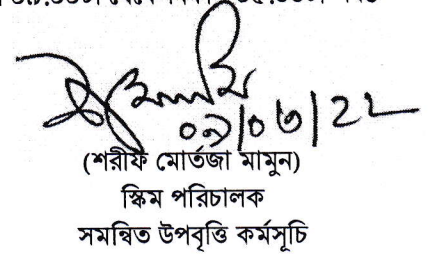 ০৯/০৬/২২
(শরীফ মোর্তজা মামুন)
স্কিম পরিচালক
সমন্বিত উপবৃত্তি কর্মসূচি